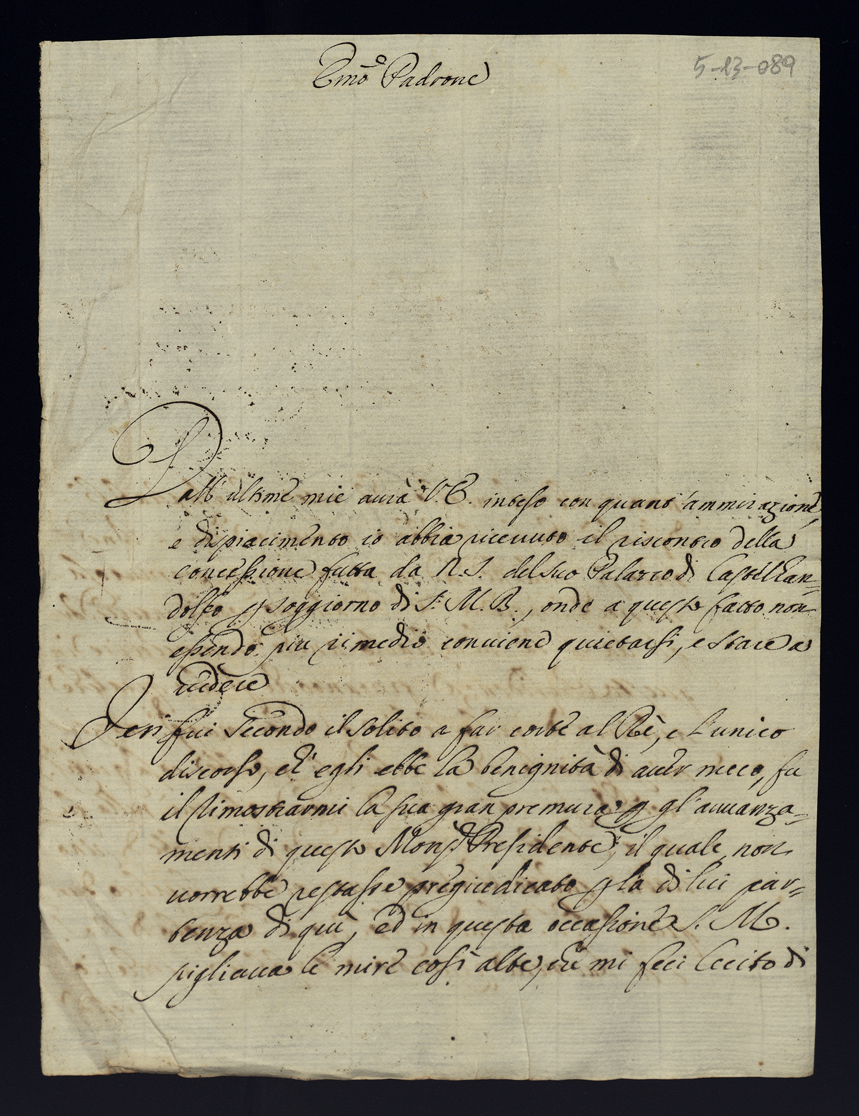 Emõ Padrone
5-23-089
Dall' ultime mie aurà V.E. inteso con quant' ammirazione,
e dispiacimento io abbia riceuuto il riscontro della
concessione fatta da N.S. del suo Palazzo di Castel Gan-
dolfo p soggiorno di S. M. B., onde a questo fatto non
essendo più rimedio conviene quietarsi, e stare a
uedere
Jeri fui secondo il solito a far corte al Rè, e l'unico
discorso, ch' egli ebbe la benignità di auer meco, fu
il dimostrarmi la sua gran premura p gl'auuanza-
menti di questo Monsr Presidente, il quale non
uorrebbe restasse pregiudicato p la di lui par-
tenza di quì, ed in questa occasione S. M.
pigliaua le mire così alte, che mi feci lecito di